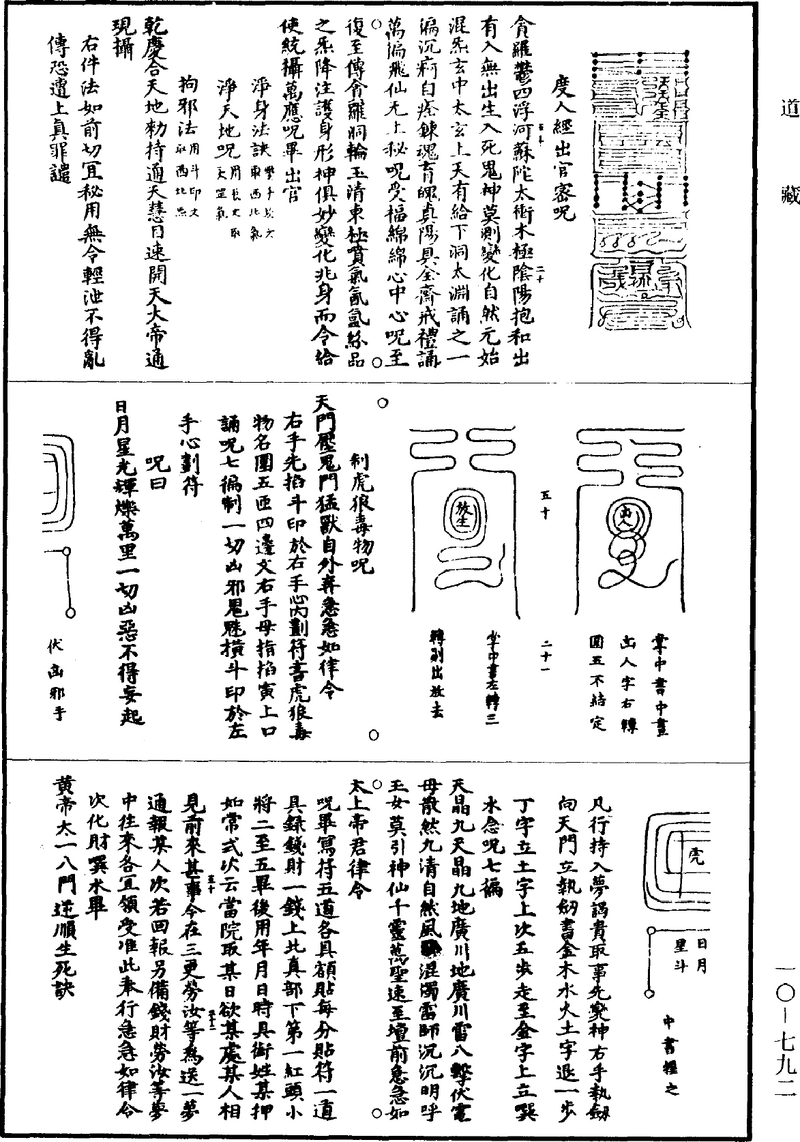 道藏
度人經出官密呪
貪羅鬱四浮河蘇陀太衝木極陰陽抱和出
有入無出生入死鬼神莫測變化自然元始
混炁玄中太玄上天有給下洞太淵誦之一
徧沉痾自痊鍊魂育魄真陽具全齋戒禮誦
萬徧飛仙无上秘呪受福綿綿心中心呪至
復至傳貪羅洞輪玉清東極貫氣氤氳絲品
之炁降注護身形神俱妙變化兆身而令给
使統攝萬應呪畢出官
淨身法訣
淨天地呪
拘邪法用斗印文
乾慶合天地勑持通天慧日速開天大帝通
現攝
右件法如前切宜秘用無令輕泄不得亂
傳恐遭上真罪譴
出人
掌中書中畫
出人字右轉
圓五不結定
五十
二十一
放生
掌中書左轉三
轉剔出放去
制虎狼毒物呪
天門壓鬼門猛獸自外奔急急如律令
右手先掐斗印於右手心內劃符書虎狼毒
物名圍五匝四邊文右手母指掐寅上口
誦呪七徧制一切凶邪鬼魅横斗印於左
手心劃符
呪曰
日月星光輝爍萬里一切凶惡不得妄起
伏凶邪手
虎
日月
星斗
中書轉之
凡行持入夢謁貴取事先棄神右手執劒
向天門立執劒書金木水火土字退一步
丁字立土字上次五步走至金字上立噀
水念呪七徧
天晶九天晶九地廣川地廣川雷八擊伏電
母散然九清自然風混濁雷師沉沉明呼
玉女莫引神仙千靈萬聖速至壇前急急如
太上帝君律令
呪畢寫符五道各具額貼每分貼符一道
具錄錢財一錢上北真部下第一紅頭小
將二至五畢後用年月日時具銜姓某押
如常式次云當院取某日欲某處某人相
見前來某事今在三更勞汝等為送一夢
通報某人次若回報另備錢財勞汝等夢
中往來各宜領受准此奉行急急如律令
次化財噀水畢
黄帝太一八門逆順生死訣
一〇—七九二